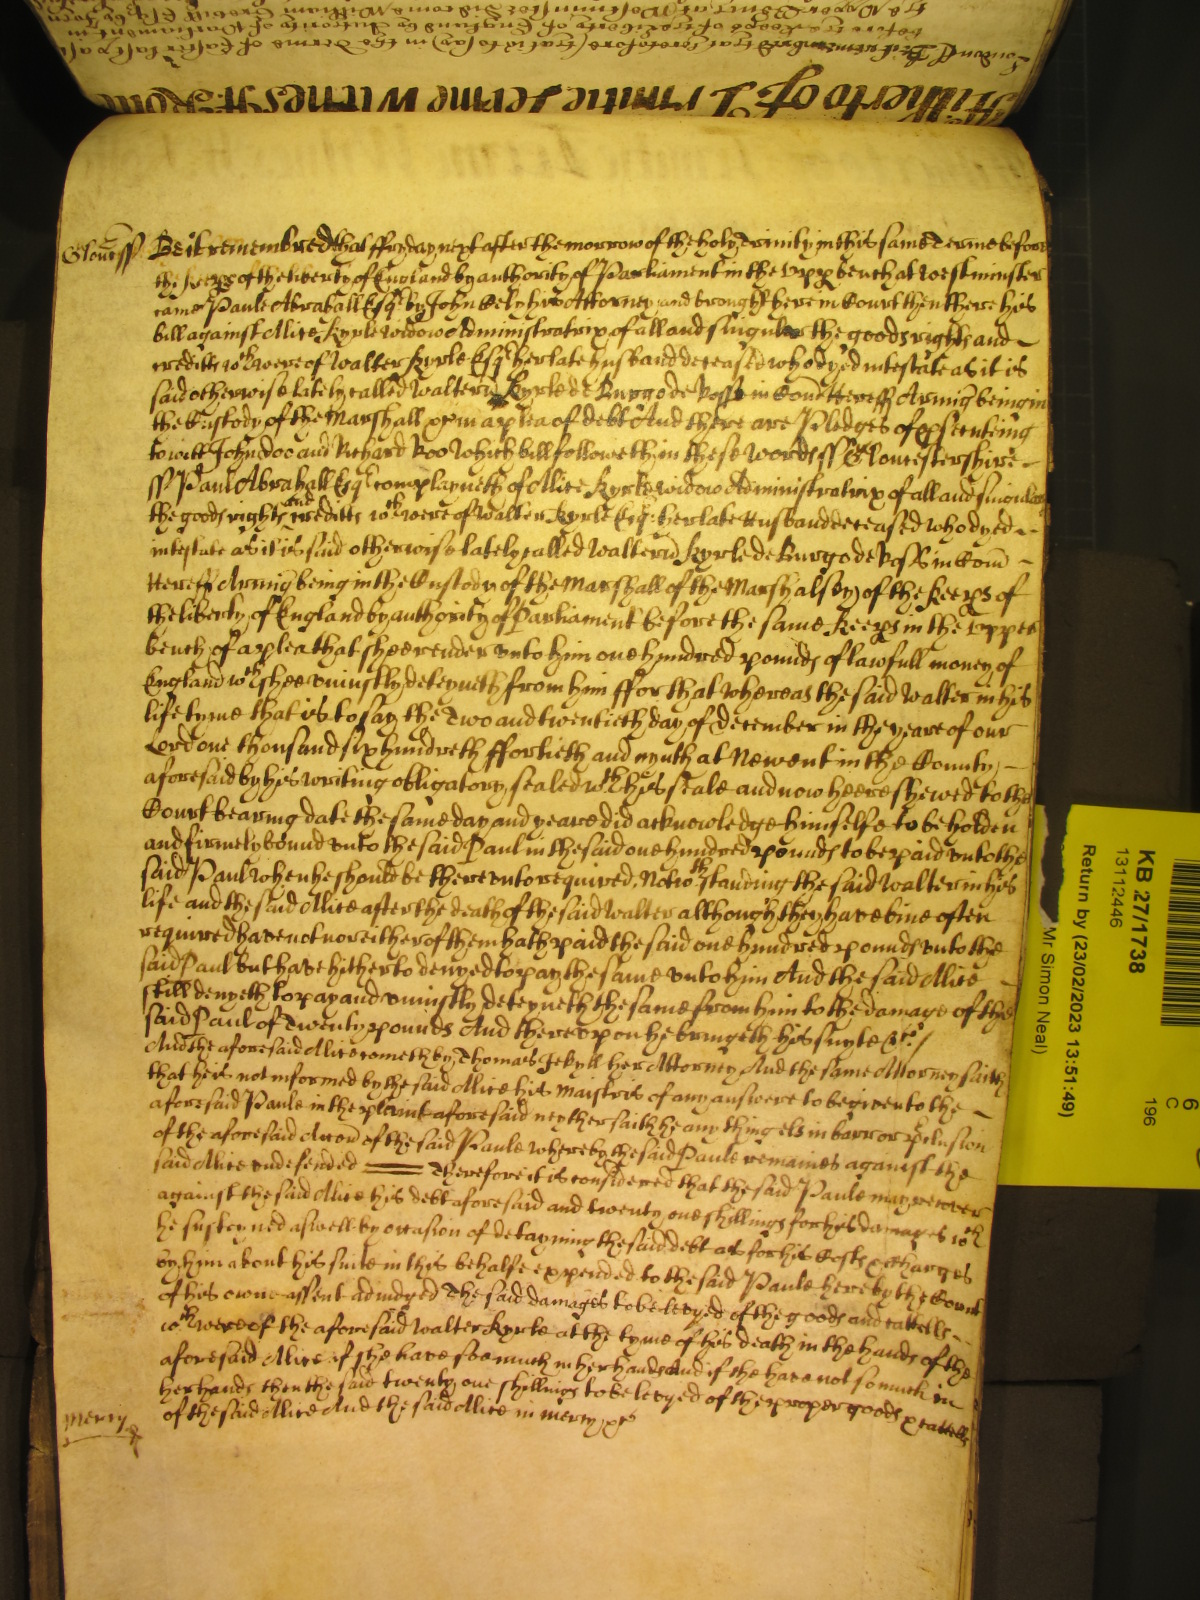 Hitherto of Trinitie Terme witnes H: Rolle
Glouc ss
Be it remembred that ffryday next after the morrow of the holy Trinity in this same Terme before
the keeps of the liberty of England by authority of Parliament in the vpp bench at westminster
came Paule Abrahall Esqr by John Cely his Attorney and brought here in Court then there his
bill against Alice Kyrle widow Administratrix of all and singuler the goods rights and
creditts wch were of Walter Kyrle Esqr her late husband deceased who dyed intestate as it is
said otherwise lately called Walterū Kyrle de Burgo de Rosse in Com̄ Hereff Armig̃ being in
the Custody of the Marshall &c in a plea of debt And there are Pledges of psecuteing
to witt John Doo and Richard Roo Which bill followeth in these words ss Gloucestershire
ss Paul Abrahall Esqr complayneth of Alice Kyrle widow Administratrix of all and singuler
the goods rights and creditts wch were of Walter Kyrle Esqr her late Husband deceased who dyed
intestate as it is said otherwise lately called Walterū Kyrle de Burgo de Rosse in Com̄
Hereff Armig̃ being in the Custody of the Marshall of the Marshalsey of the Keeps of
the liberty of England by authority of Parliament before the same Keeps in the vpper
bench of a plea that shee render vnto him one hundred pounds of lawfull money of
England wch shee uniustly deteyneth from him ffor that whereas the said Walter in his
life tyme that is to say the Two and twentieth day of December in the yeare of our
Lord one thousand six hundreth ffortieth and nynth at Newent in the County
aforesaid by his writing obligatory sealed wth his seale and now heere shewed to the
Court bearing date the same day and yeare did acknowledge himselfe to be holden
and firmely bound vnto the said Paul in the said one hundred pounds to be paid vnto the
said Paul when he should be therevnto required, Notwthstanding the said Walter in his
life and the said Alice after the death of the said Walter although they have bine often
required have not nor either of them hath paid the said one hundred pounds vnto the
said Paul but have hitherto denyed to pay the same vnto him And the said Alice
still denyeth to pay and uniustly deteyneth the same from him to the damage of the
said Paul of Twenty pounds And therevpon he bringeth his suyte &c /
And the aforesaid Alice cometh by Thomas Jekyll her Attorney And the same Attorney saith
that he is not informed by the said Alice his maistris of any answere to be given to the
aforesaid Paule in the plaint aforesaid neyther saith he any thing els in barr or pclusion
of the aforesaid Accon̄ of the said Paule whereby the said Paule remaines against the
said Alice undefended Therefore it is considered that the said Paule may recover
against the said Alice his debt aforesaid and twenty one shillings for his damages wch
he susteyned aswell by occasion of detayning the said debt as for his Costs & charges
by him about his suite in this behalfe expended to the said Paule here by the Court
of his owne assent adiudged The said damages to be levyed of the goods and cattells
wch were of the aforesaid Walter Kyrle at the tyme of his death in the hands of the
aforesaid Alice if she have soe much in her hands And if she have not so much in
her hands then the said twenty one shillings to be levyed of the proper goods & cattells
of the said Alice And the said Alice in mercy &c
Mercy
KB 27/1738
13112446
Return by (23/02/2023 13:51:49)
Mr Simon Neal)
6
C
196